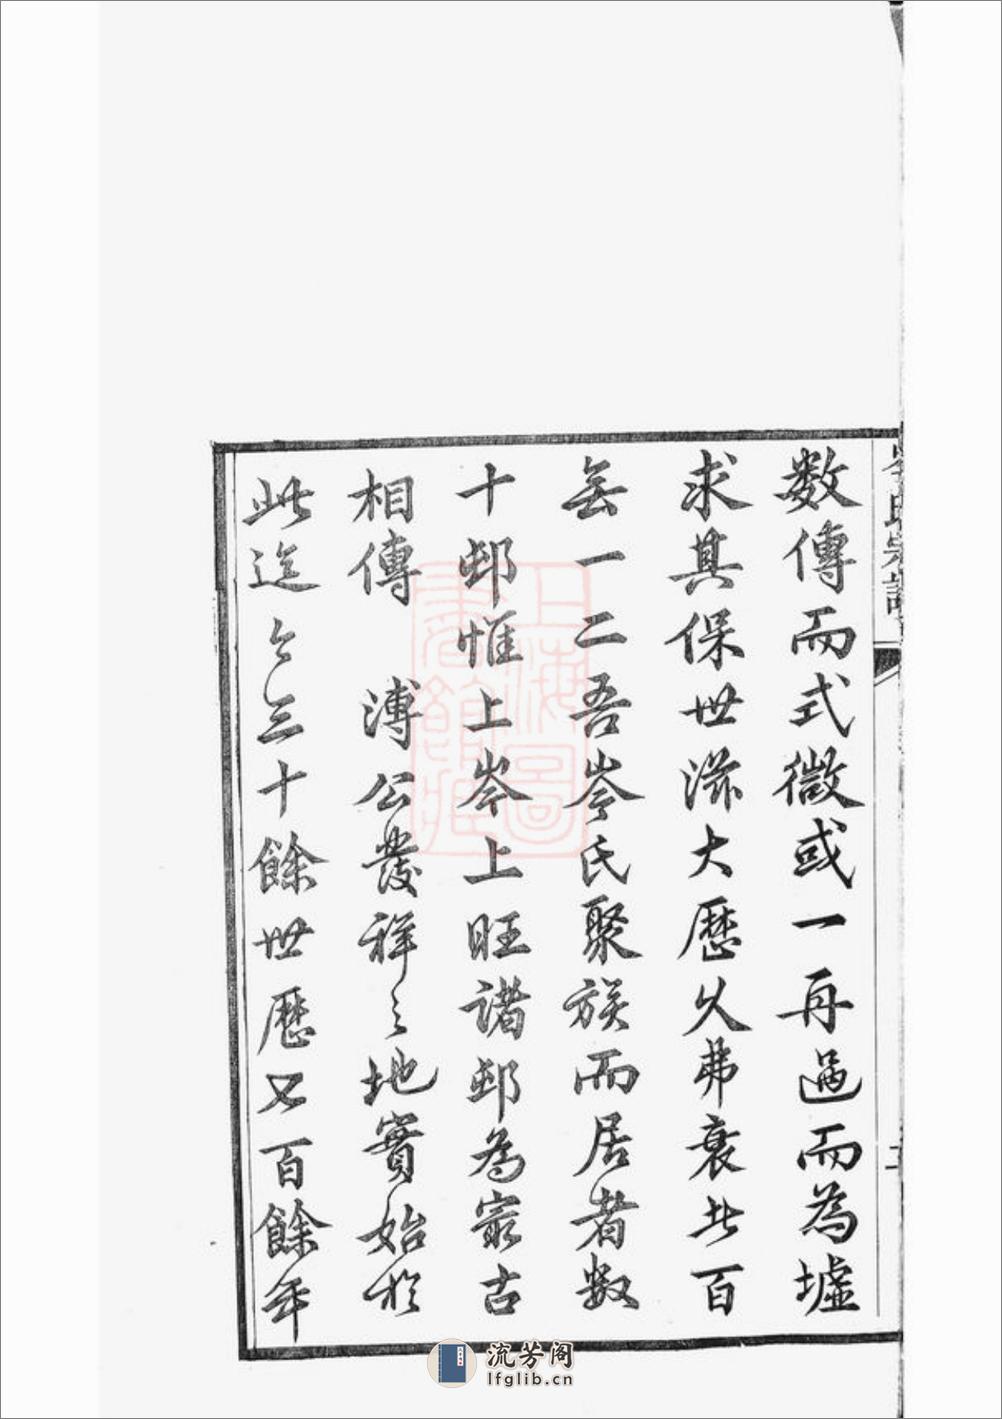 岑氏宗譜
數傳而式微或一再過而為墟
求其保世滋大歷久弗衰者百
無一二吾岑氏聚族而居者數
十邨惟上岑上旺諸邨為最古
相傳溥公發祥之地實始於
此迄今三十餘世歷又百餘年
上海圖書館藏
流芳阁
lfglib.cn